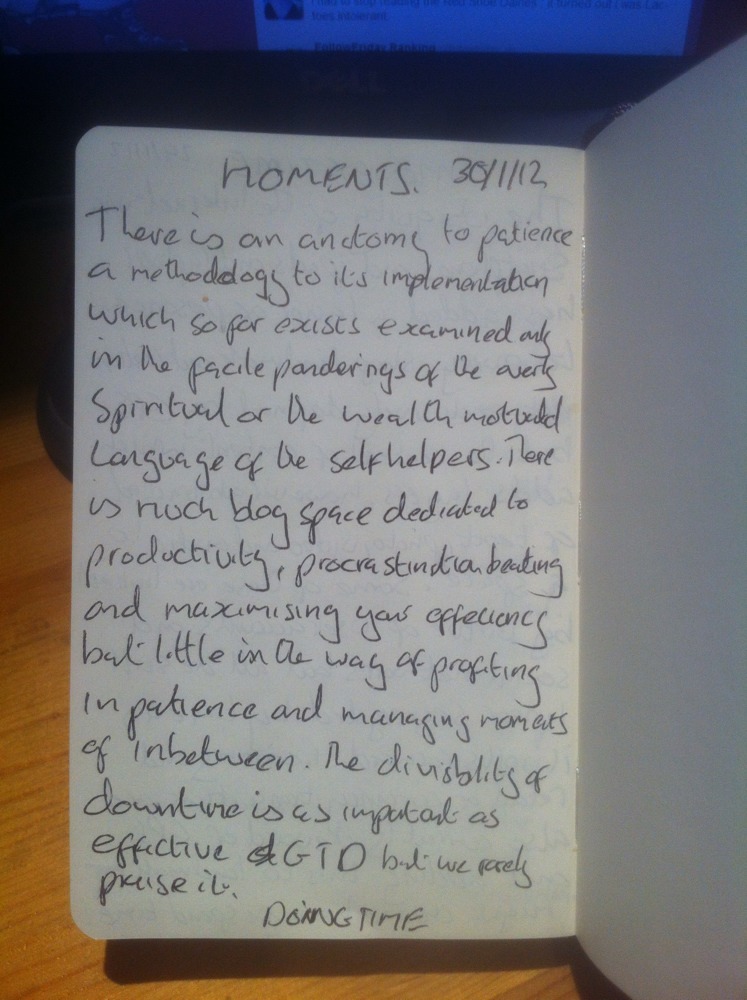 I had to stop reading the Red Shoe Diaries : it turned out I was Lac-
toes intolerant.
FollowFriday Ranking
DELL
MOMENTS. 30/1/12
There is an anatomy to patience
a methodology to it's implementation
which so far exists examined only
in the facile ponderings of the overly
Spiritual or the wealth motivated
Language of the selfhelpers. There
is much blog space dedicated to
productivity, procrastination beating
and maximising your effeciency
but little in the way of profiting
in patience and managing moments
of inbetween. The divisibility of
downtime is as important as
effective GTD but we rarely
praise it.
DOINGTIME